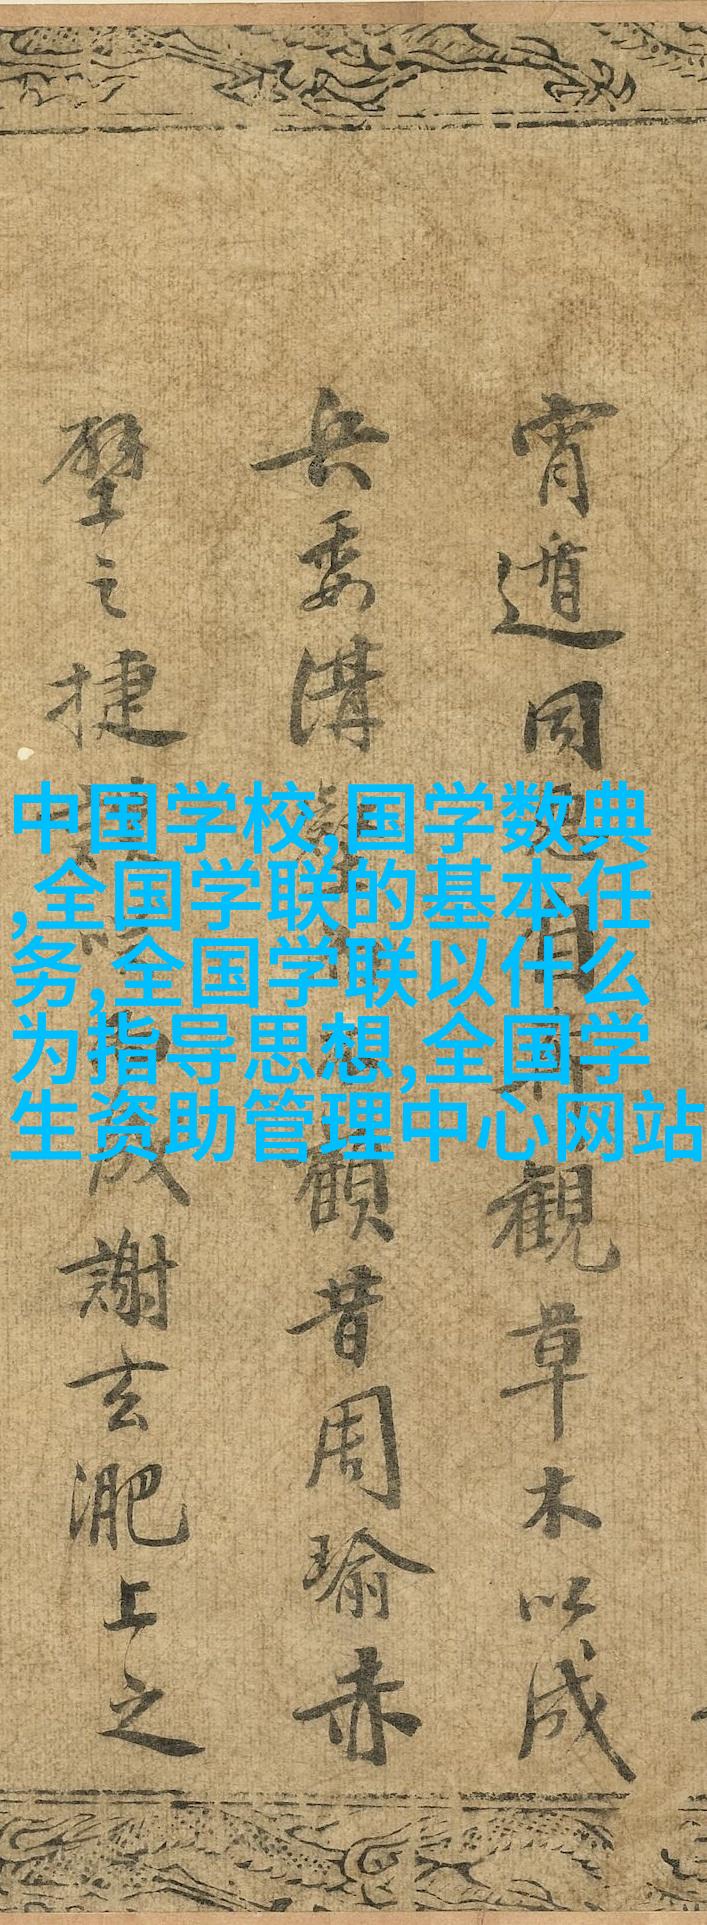 中国学校,国学数典
,全国学联的基本任
务,全国学联以什么
为指导思想,全国学
生资助管理中心网站
宵遁同目觀草木以成
兵委溝顧昔周瑜赤
壁之捷成謝玄淝上之